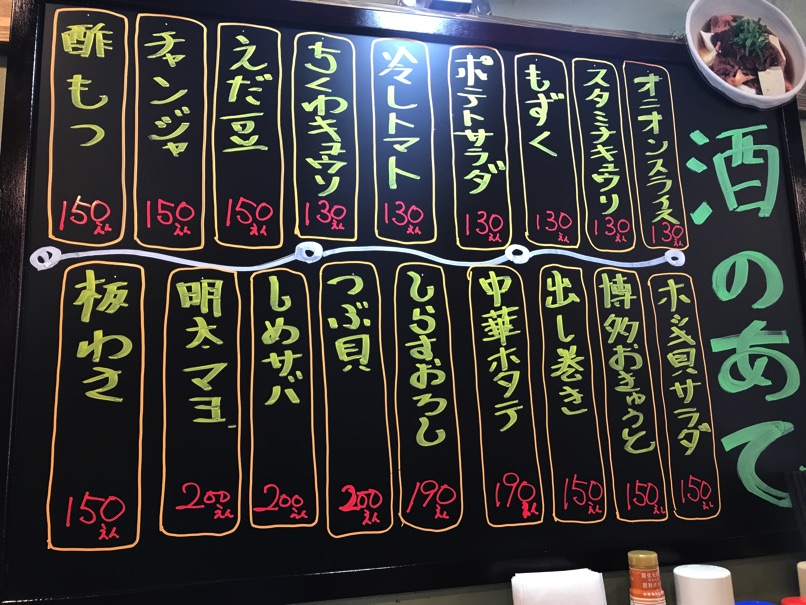 酒のあて
オニオンスライス
130えん
スタミナキュウリ
130えん
もずく
130えん
ポテトサラダ
130えん
冷しトマト
130えん
ちくわキュウリ
130えん
えだ豆
150えん
チャンジャ
150えん
酢もつ
150えん
ホッキ貝サラダ
150えん
博多おきゅうと
150えん
出し巻き
150えん
中華ホタテ
190えん
しらすおろし
190えん
つぶ貝
200えん
しめサバ
200えん
明太マヨ
200えん
板わさ
150えん